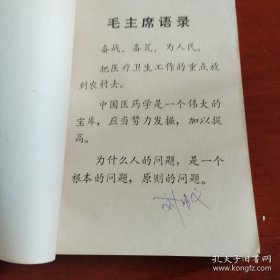 毛主席语录
备战、备荒、为人民。
把医疗卫生工作的重点放
到农村去。
中国医药学是一个伟大的
宝库，应当努力发掘，加以提
高。
为什么人的问题，是一个
根本的问题，原则的问题。
孔夫子旧书网